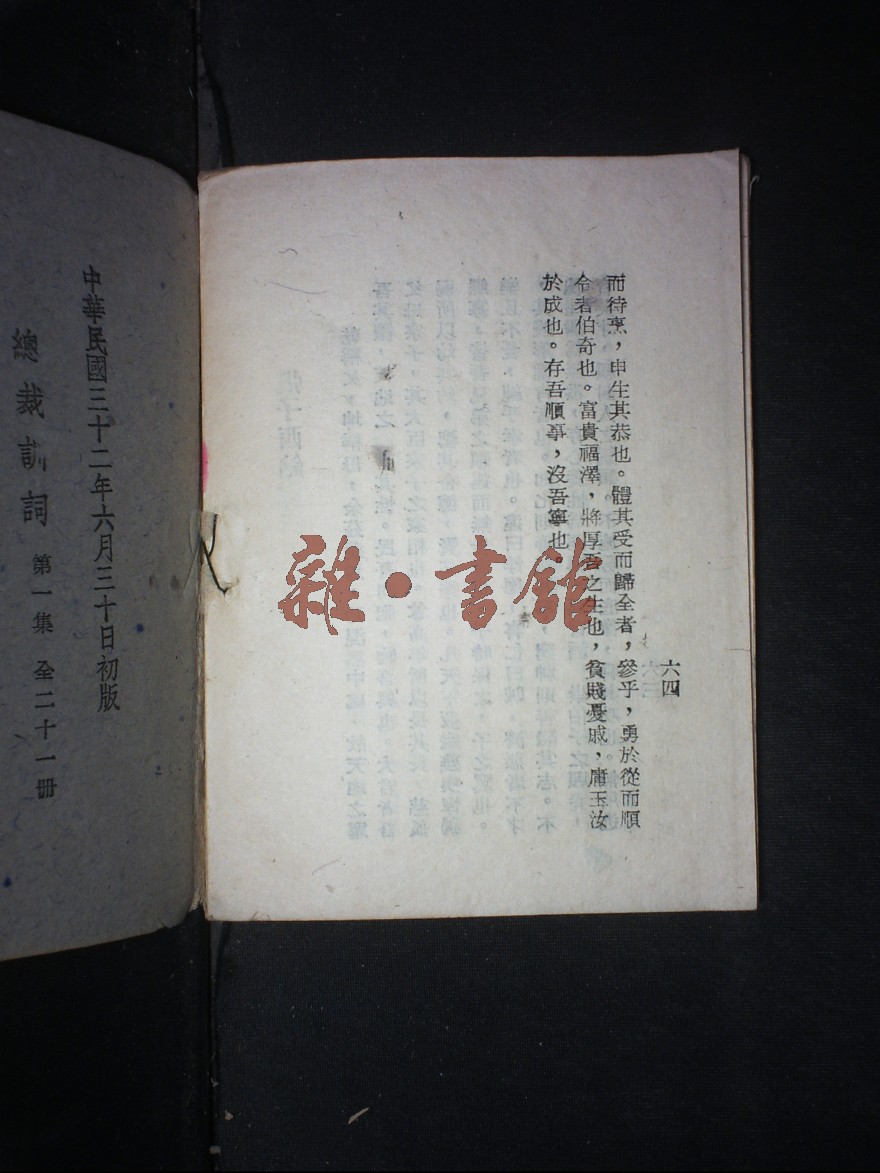 六四
而待烹，申生其恭也。體其受而歸全者，參乎，勇於從而順
令者伯奇也。富貴福澤，將厚吾之生也，貧賤憂戚，庸玉汝
於成也。存吾順事，沒吾寧也
中華民國三十二年六月三十日初版
總裁訓詞 第一集 全二十一冊
雜·書館